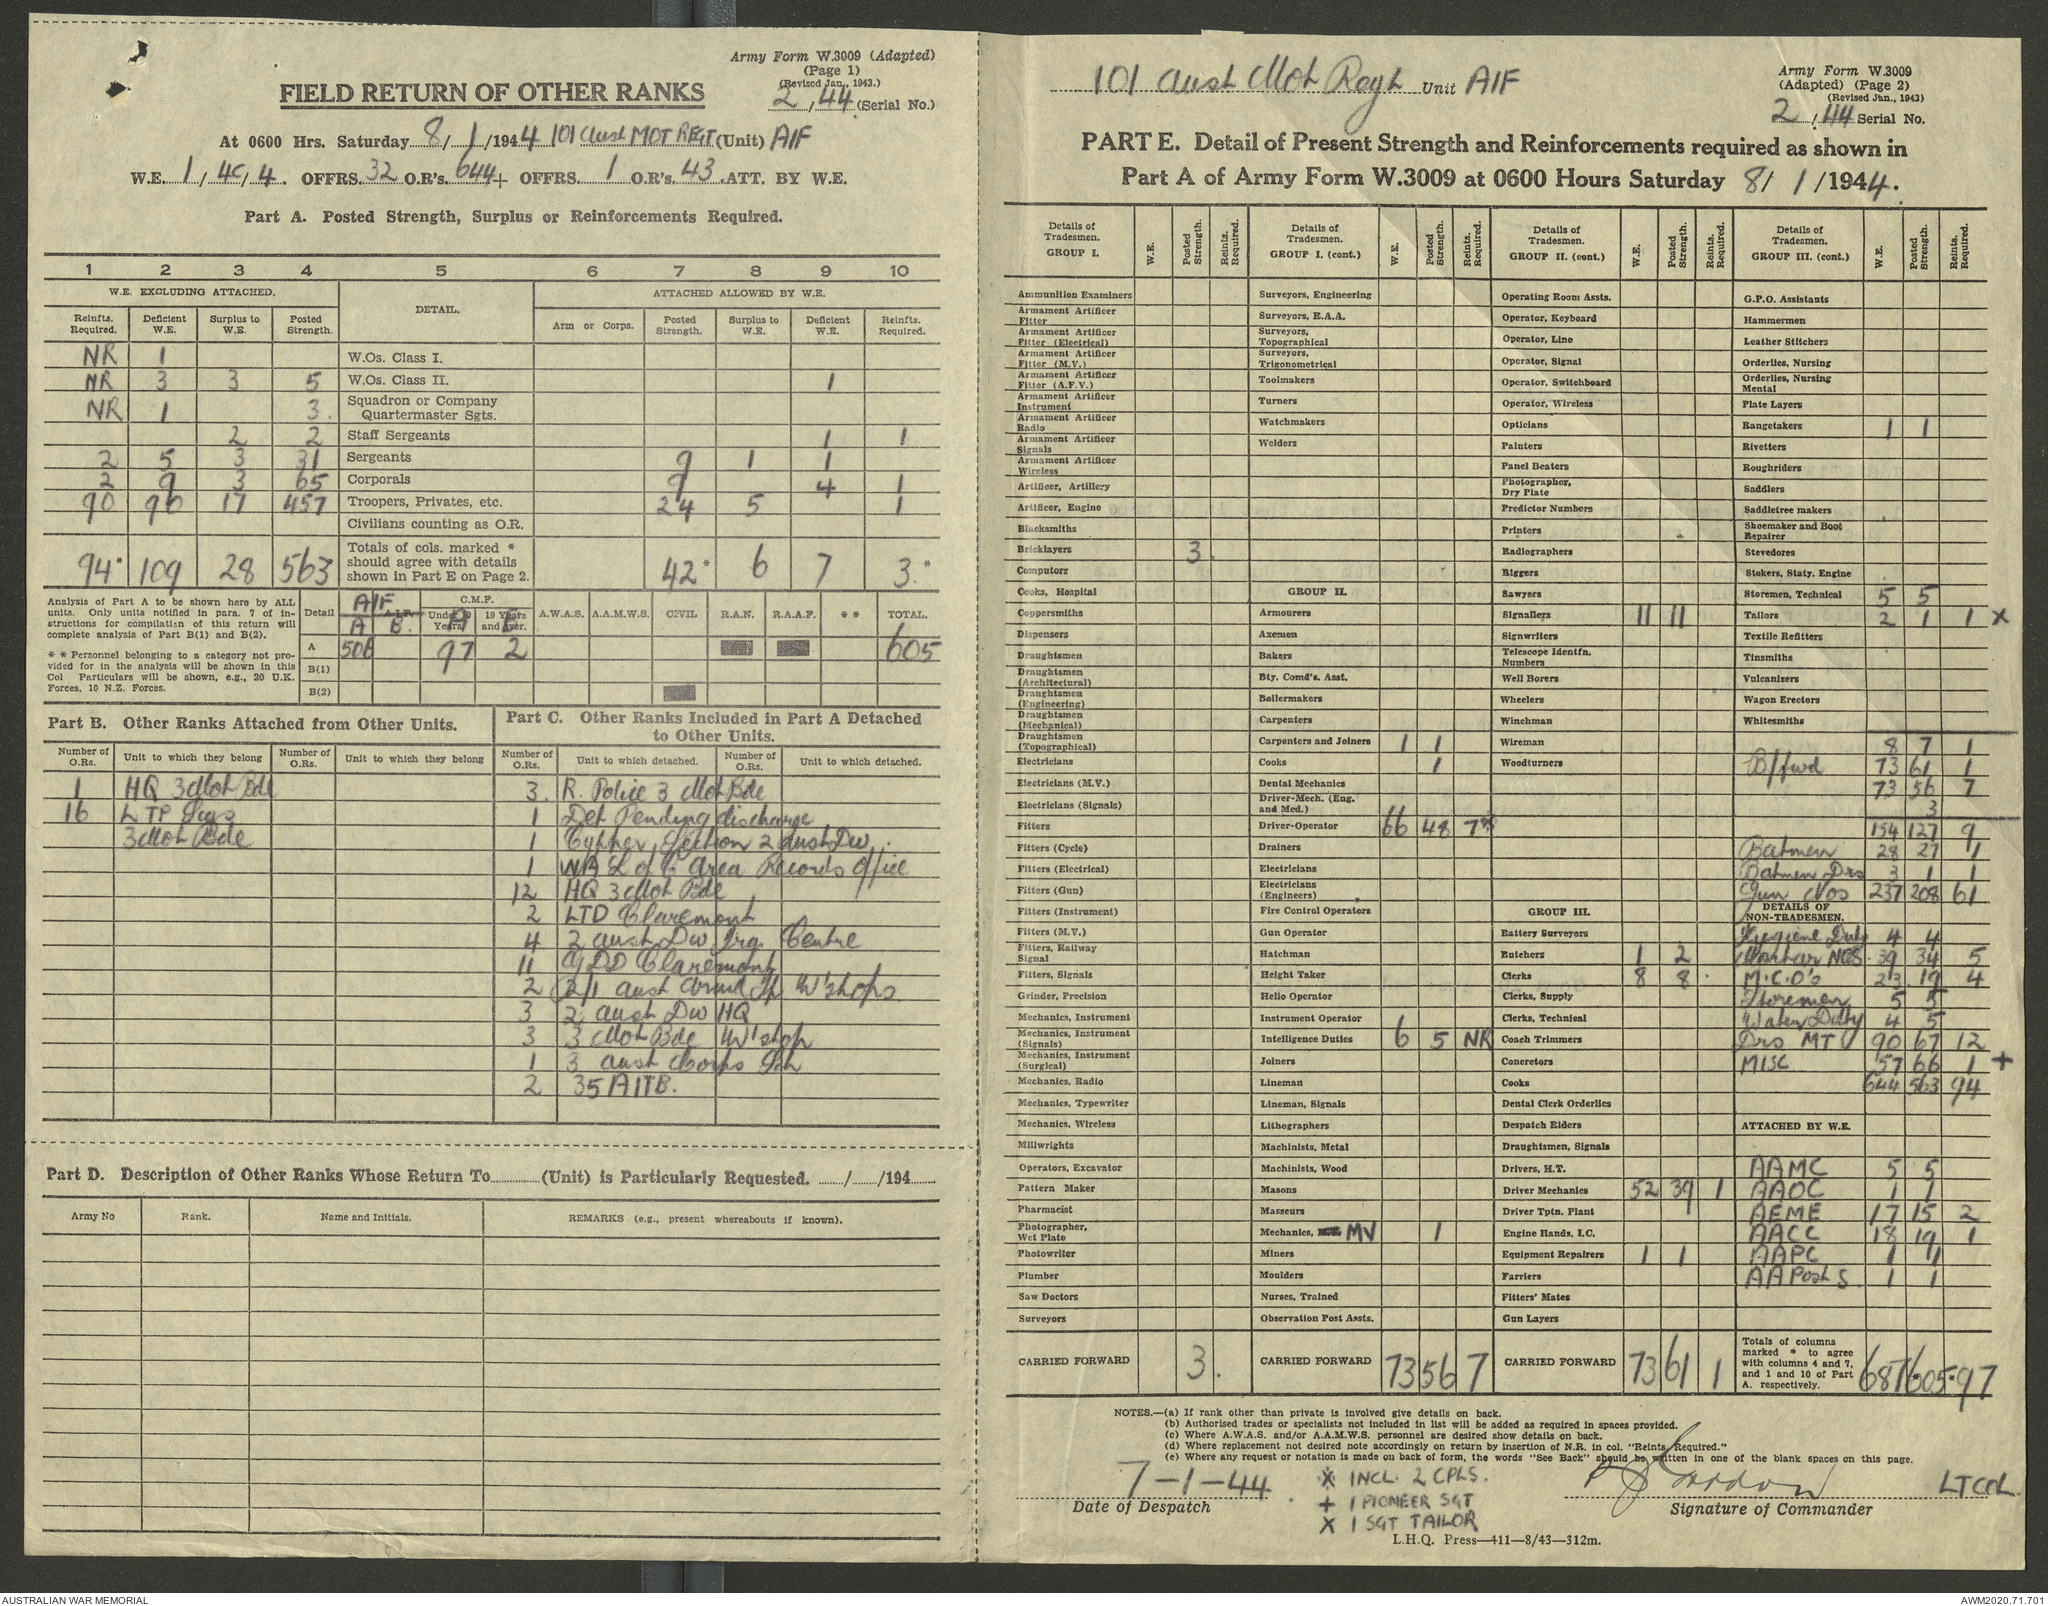 Army Form W.3009 (Adapted)
(Page 1)
(Revised Jan., 1943.)
FIELD RETURN OF OTHER RANKS
2/44 (Serial No.)
At 0600 Hrs. Saturday 8/1/1944 101 Aust MOT REGT (Unit) AIF
W.E. 1/4C/4. OFFRS. 32 O.R's. 644 + OFFRS. 1 O.R's. 43 ATT. BY W.E.
Part A. Posted Strength, Surplus or Reinforcements Required.
1 2 3 4 5 6 7 8 9 10
W.E. EXCLUDING ATTACHED. DETAIL. ATTACHED ALLOWED BY W.E.
Reinfts. Required. Deficient W.E. Surplus to W.E. Posted Strength. Arm or Corps. Posted Strength. Surplus to W.E. Deficient W.E. Reinfts. Required.
NR 1 W.Os. Class I.
NR 3 3 5 W.Os. Class II. 1
NR 1 3. Squadron or Company Quartermaster Sgts.
2 2 Staff Sergeants 1 1
2 5 3 31 Sergeants 9 1 1
2 9 3 65 Corporals 9 4 1
90 90 17 457 Troopers, Privates, etc. 24 5 1
Civilians counting as O.R.
94* 109 28 563* Totals of cols. marked * should agree with details shown in Part E on Page 2. 42* 6 7 3.*
Analysis of Part A to be shown here by ALL units. Only units notified in para. 7 of instructions for compilation of this return will complete analysis of Part B(1) and B(2).
* * Personnel belonging to a category not provided for in the analysis will be shown in this Col Particulars will be shown, e.g., 20 U.K. Forces, 10 N.Z. Forces.
Detail AIF C.M.F. A.W.A.S. A.A.M.W.S. CIVIL R.A.N. R.A.A.F. * * TOTAL.
A B. Under 19 Years 19 Years and over.
A 506 97 2 605
B(1)
B(2)
Part B. Other Ranks Attached from Other Units.
Number of O.Rs. Unit to which they belong Number of O.Rs. Unit to which they belong
1 HQ 3 Mot Bde
16 LTP Sigs
3 Mot Bde
Part C. Other Ranks Included in Part A Detached to Other Units.
Number of O.Rs. Unit to which detached. Number of O.Rs. Unit to which detached.
3. R. Police 3 Mot Bde
1 Det Pending discharge
1 Cypher Section 2 Aust Div.
1 WA L of C Area Records Office
12 HQ 3 Mot Bde
2 LTD Claremont
4 2 Aust Div Trg. Centre
11 GDD Claremont
2 2/1 Aust Armd W'shops
3 2 Aust Div HQ
3 3 Mot Bde W'shop
1 3 Aust Corps Sch
2 35 AITB.
Part D. Description of Other Ranks Whose Return To (Unit) is Particularly Requested. / /194
Army No Rank. Name and Initials. REMARKS (e.g., present whereabouts if known).
101 Aust Mot Regt Unit AIF
Army Form W.3009
(Adapted) (Page 2)
(Revised Jan., 1943)
2/44 Serial No.
PART E. Detail of Present Strength and Reinforcements required as shown in
Part A of Army Form W.3009 at 0600 Hours Saturday 8/1/1944.
Details of Tradesmen. GROUP I. W.E. Posted Strength. Reints. Required.
Ammunition Examiners
Armament Artificer Fitter
Armament Artificer Fitter (Electrical)
Armament Artificer Fitter (M.V.)
Armament Artificer Fitter (A.F.V.)
Armament Artificer Instrument
Armament Artificer Radio
Armament Artificer Signals
Armament Artificer Wireless
Artificer, Artillery
Artificer, Engine
Blacksmiths
Bricklayers 3.
Computors
Cooks, Hospital
Coppersmiths
Dispensers
Draughtsmen
Draughtsmen (Architectural)
Draughtsmen (Engineering)
Draughtsmen (Mechanical)
Draughtsmen (Topographical)
Electricians
Electricians (M.V.)
Electricians (Signals)
Fitters
Fitters (Cycle)
Fitters (Electrical)
Fitters (Gun)
Fitters (Instrument)
Fitters (M.V.)
Fitters, Railway Signal
Fitters, Signals
Grinder, Precision
Mechanics, Instrument
Mechanics, Instrument (Signals)
Mechanics, Instrument (Surgical)
Mechanics, Radio
Mechanics, Typewriter
Mechanics, Wireless
Millwrights
Operators, Excavator
Pattern Maker
Pharmacist
Photographer, Wet Plate
Photowriter
Plumber
Saw Doctors
Surveyors
CARRIED FORWARD 3.
Details of Tradesmen. GROUP I. (cont.) W.E. Posted Strength. Reints. Required.
Surveyors, Engineering
Surveyors, R.A.A.
Surveyors, Topographical
Surveyors, Trigonometrical
Toolmakers
Turners
Watchmakers
Welders
GROUP II.
Armourers
Axemen
Bakers
Bty. Comd's. Asst.
Boilermakers
Carpenters
Carpenters and Joiners 1 1
Cooks 1
Dental Mechanics
Driver-Mech. (Eng. and Med.)
Driver-Operator 66 48 7*
Drainers
Electricians
Electricians (Engineers)
Fire Control Operators
Gun Operator
Hatchman
Height Taker
Helio Operator
Instrument Operator
Intelligence Duties 6 5 NR
Joiners
Lineman
Lineman, Signals
Lithographers
Machinists, Metal
Machinists, Wood
Masons
Masseurs
Mechanics, MV 1
Miners
Moulders
Nurses, Trained
Observation Post Assts.
CARRIED FORWARD 73 56 7
Details of Tradesmen. GROUP II. (cont.) W.E. Posted Strength. Reints. Required.
Operating Room Assts.
Operator, Keyboard
Operator, Line
Operator, Signal
Operator, Switchboard
Operator, Wireless
Opticians
Painters
Panel Beaters
Photographer, Dry Plate
Predictor Numbers
Printers
Radiographers
Riggers
Sawyers
Signallers 11 11
Signwriters
Telescope Identfn. Numbers
Well Borers
Wheelers
Winchman
Wireman
Woodturners
GROUP III.
Battery Surveyors
Butchers 1 2
Clerks 8 8
Clerks, Supply
Clerks, Technical
Coach Trimmers
Concretors
Cooks
Dental Clerk Orderlies
Despatch Riders
Draughtsmen, Signals
Drivers, H.T.
Driver Mechanics 52 39 1
Driver Tptn. Plant
Engine Hands, I.C.
Equipment Repairers 1 1
Farriers
Fitters' Mates
Gun Layers
CARRIED FORWARD 73 61 1
Details of Tradesmen. GROUP III. (cont.) W.E. Posted Strength. Reints. Required.
G.P.O. Assistants
Hammermen
Leather Stitchers
Orderlies, Nursing
Orderlies, Nursing Mental
Plate Layers
Rangetakers 1 1
Rivetters
Roughriders
Saddlers
Saddletree makers
Shoemaker and Boot Repairer
Stevedores
Stokers, Staty. Engine
Storemen, Technical 5 5
Tailors 2 1 1 x
Textile Refitters
Tinsmiths
Vulcanizers
Wagon Erectors
Whitesmiths
8 7 1
B/fwd 73 61 1
73 56 7
3
154 127 9
Batmen 28 27 1
Batmen Drs 3 1 1
Gun Nos 237 208 61
DETAILS OF NON-TRADESMEN.
Hygiene Duty 4 4
Mortar NOS. 39 34 5
M.C.O's 23 19 4
Storemen 5 5
Water Duty 4 5
Drs MT 90 67 12
MISC 57 66 1 +
644 563 94
ATTACHED BY W.E.
AAMC 5 5
AAOC 1 1
AEME 17 15 2
AACC 18 19 1
AAPC 1 1
AA Post S. 1 1
Totals of columns marked * to agree with columns 4 and 7, and 1 and 10 of Part A. respectively. 687 *605 *97
NOTES.—(a) If rank other than private is involved give details on back.
(b) Authorised trades or specialists not included in list will be added as required in spaces provided.
(c) Where A.W.A.S. and/or A.A.M.W.S. personnel are desired show details on back.
(d) Where replacement not desired note accordingly on return by insertion of N.R. in col. "Reints. Required."
(e) Where any request or notation is made on back of form, the words "See Back" should be written in one of the blank spaces on this page.
7-1-44
Date of Despatch
* INCL. 2 CPLS.
+ 1 PIONEER SGT
x 1 SGT TAILOR
LTCOL
Signature of Commander
L.H.Q. Press—411—8/43—312m.
AUSTRALIAN WAR MEMORIAL
AWM2020.71.701